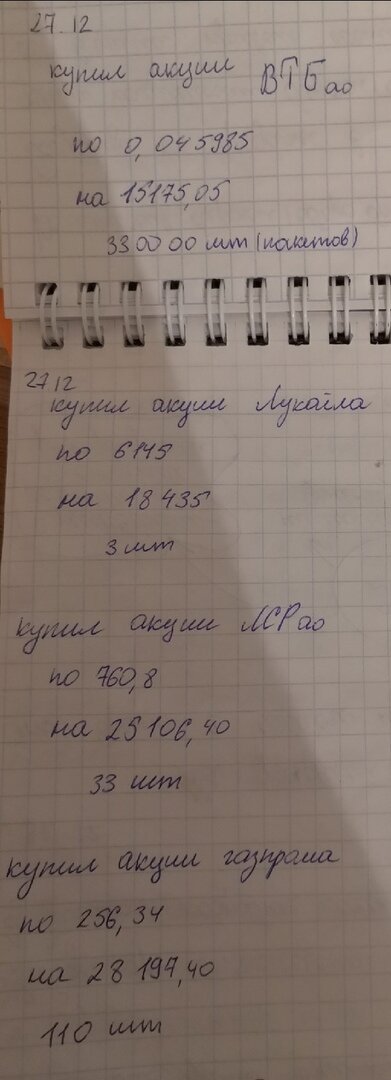 27.12
купил акции ВТБао
по 0,045985
на 15175,05
330000 шт (пакетов)
27 12
купил акции Лукойла
по 6145
на 18435
3 шт
купил акции ЛСРао
по 760,8
на 25106,40
33 шт
купил акции газпрома
по 256,34
на 28197,40
110 шт